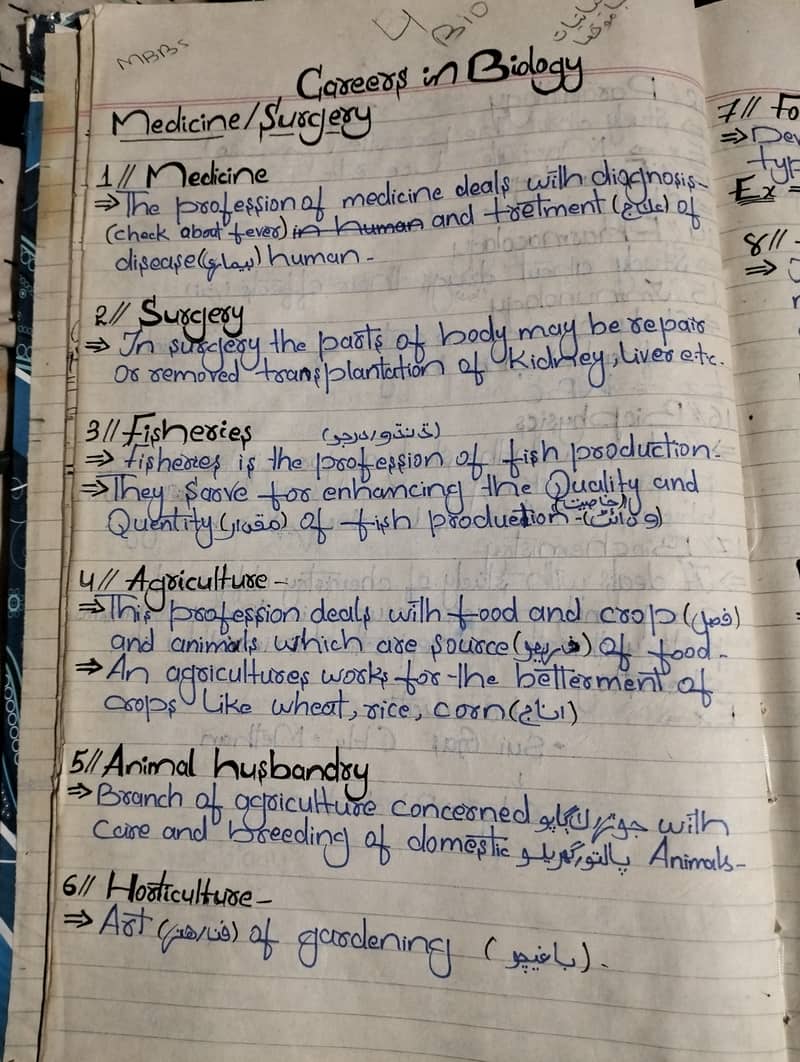 MBBS
BIO
Careers in Biology
Medicine/Surgery
1// Medicine
⇒ The profession of medicine deals with diagnosis-
(check about fever) in human and tretment (علاج) of
disease (بيماري) human -
2// Surgery
⇒ In surgery the parts of body may be repair
Or removed transplantation of Kidney, Liver etc.
3// Fisheries
⇒ fisheries is the profession of fish production.
⇒ They Sarve for enhancing the Quality and
Quentity (مقدار) of fish production - (خاصيت)
4// Agriculture -
⇒ This profession deals with food and crop (فصل)
and animals which are source of food -
⇒ An agricultures works for the betterment of
crops like wheat, rice, corn (اناج)
5// Animal husbandry
⇒ Branch of agriculture concerned with
Care and breeding of domestic پالتو, گھريلو Animals -
6// Horticulture -
⇒ Art (فن/هنر) of gardening (باغيچو) .
7// Fo
⇒ Dev
typ
Ex =
8// -
⇒